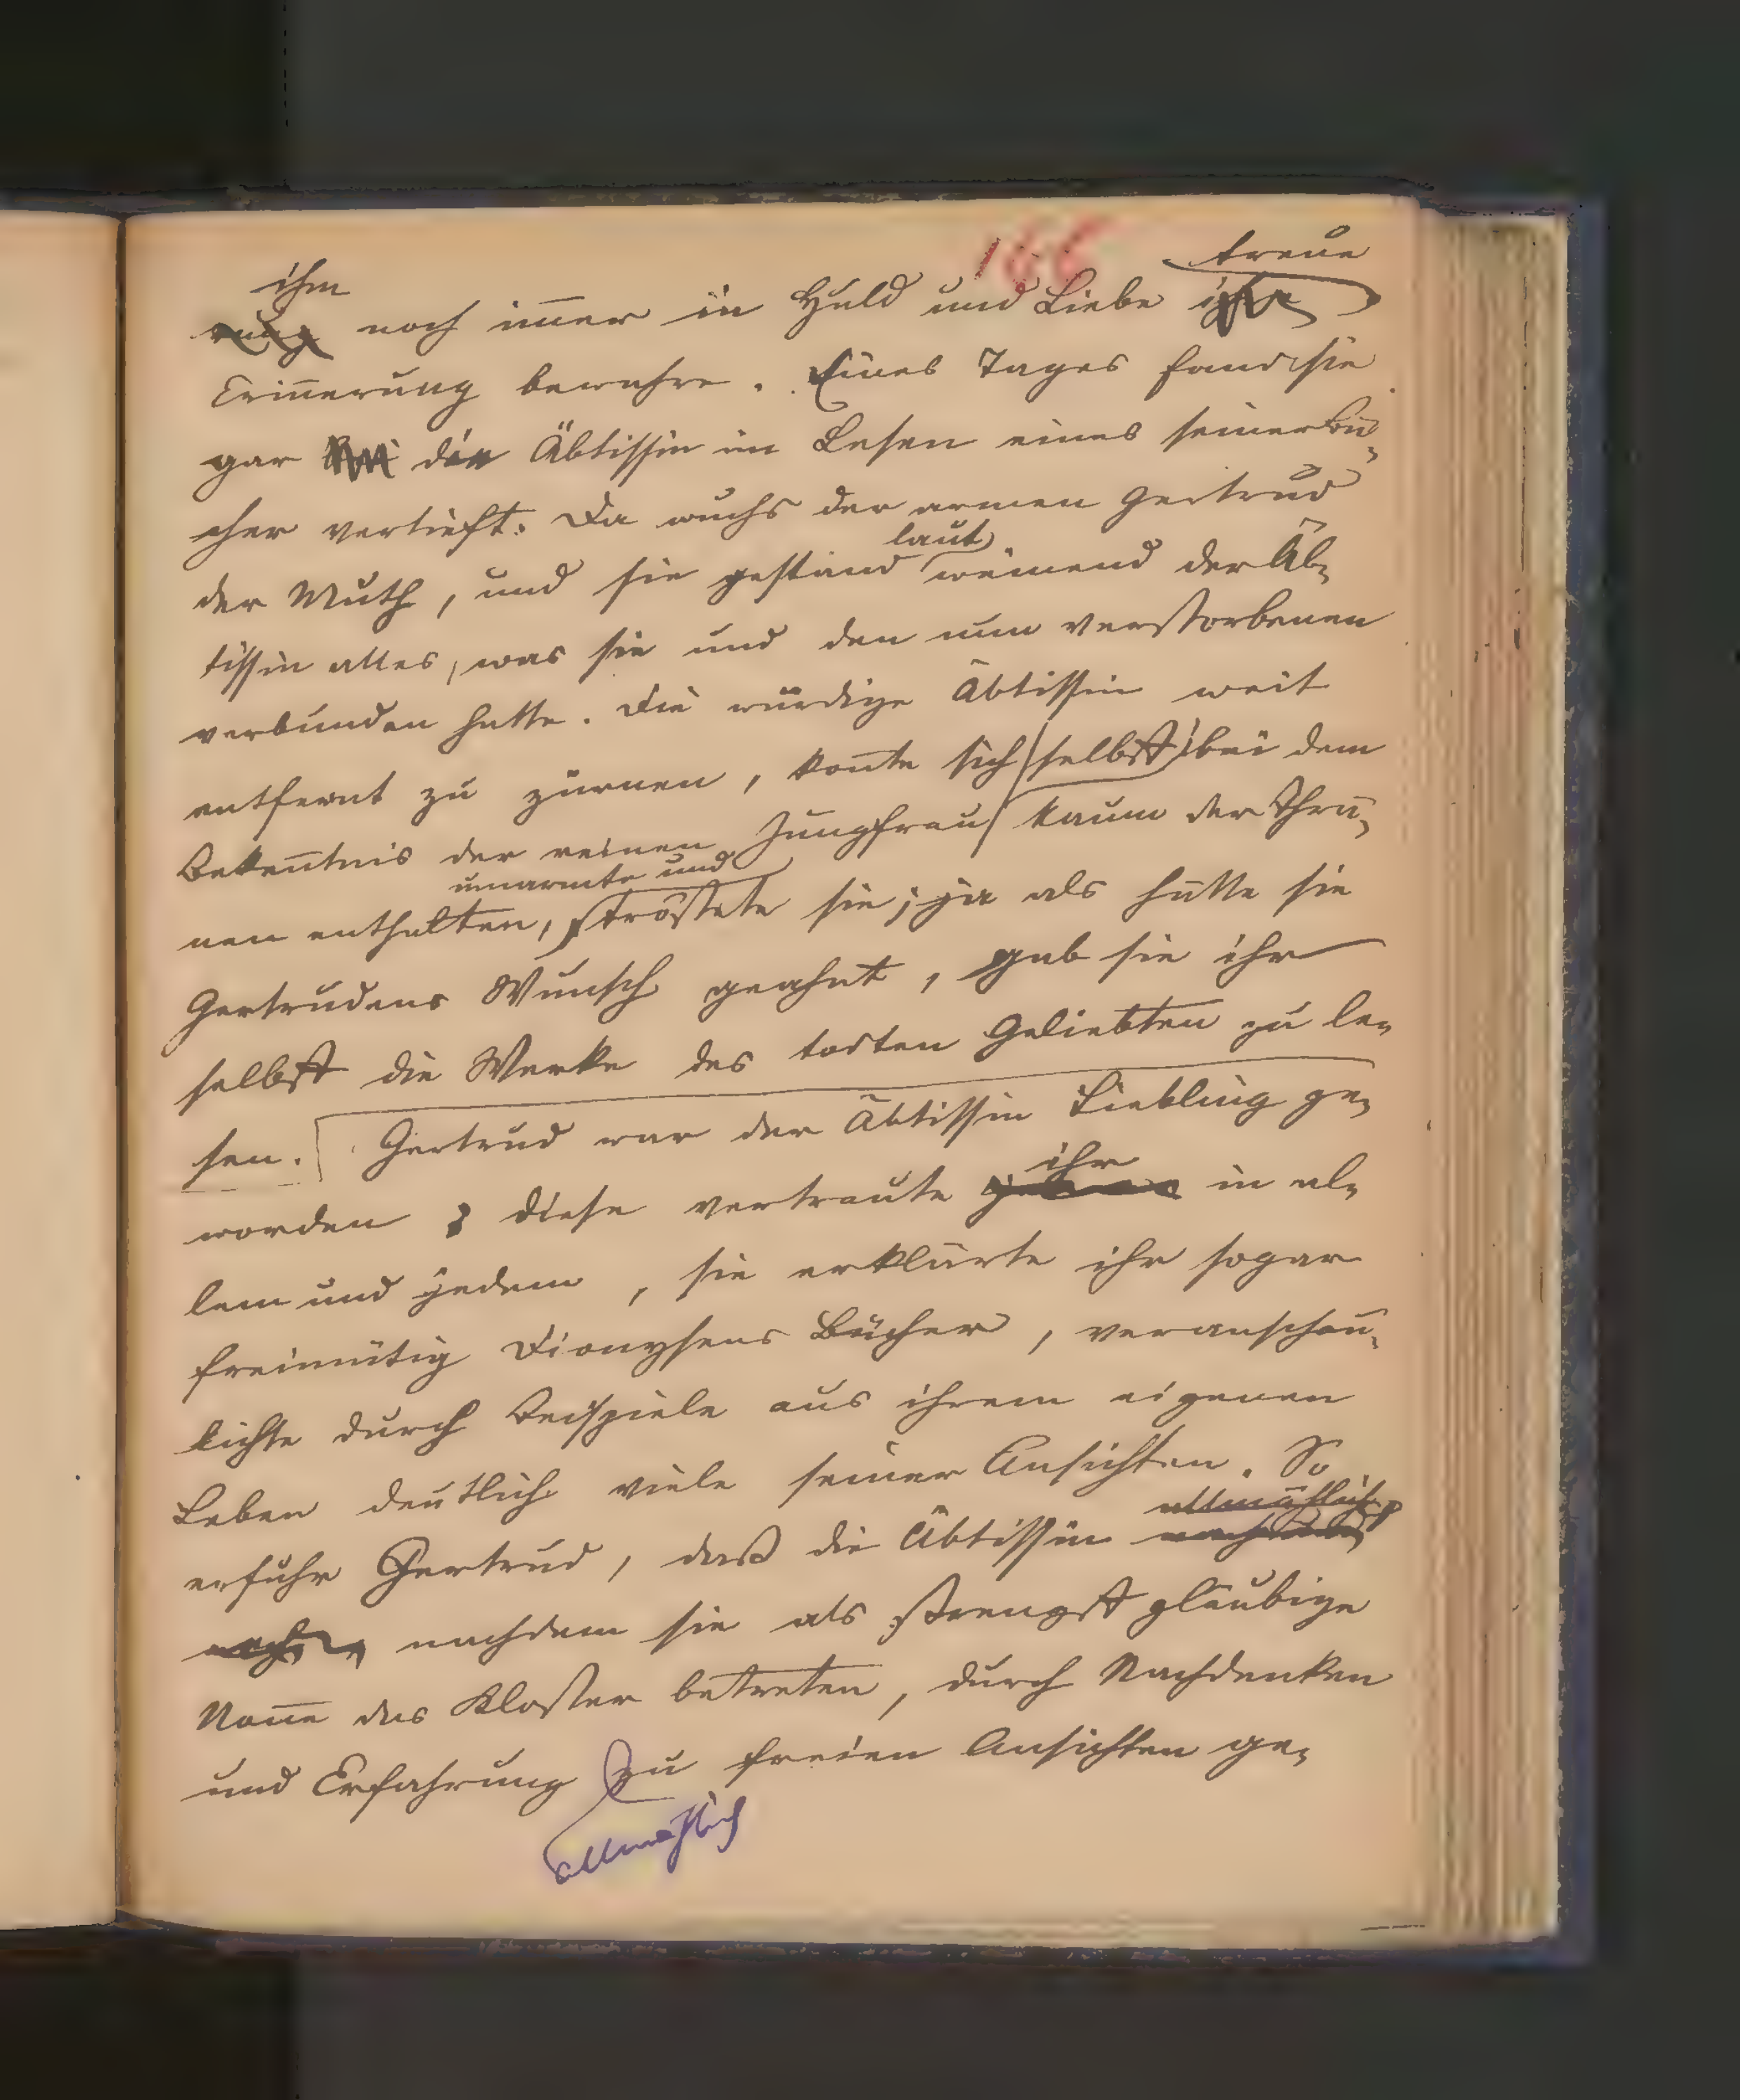 166
ihm treue
rung noch im̄er in Huld und Liebe ihre
Erin̄erung bewahre. Eines Tages fand sie
gar die Äbtissin im Lesen eines seiner Bü-
cher vertieft. Da wuchs der armen Gertrud
laut
der Muth, und sie gestand weinend der Äb-
tissin alles, was sie und den nun verstorbenen
verbunden hatte. Die würdige Äbtissin weit
entfernt zu zürnen, kon̄te sich selbst bei dem
Beken̄tnis der reinen Jungfrau kaum der Thrä-
umarmte und
nen enthalten, tröstete sie; ja als hätte sie
Gertrudens Wunsch geahnt, gab sie ihr
selbst die Werke des todten Geliebten zu le-
sen. Gertrud war der Äbtissin Liebling ge-
ihr
worden; diese vertraute in al-
lem und jedem, sie erklärte ihr sogar
freimütig Dionysens Bücher, veranschau-
lichte durch Beispiele aus ihrem eigenen
Leben deutlich viele seiner Ansichten. So
allmählich
erfuhr Gertrud, daß die Äbtissin nachdem
nachdem sie als strengst gläubige
Non̄e das Kloster betreten, durch Nachdenken
und Erfahrung zu freien Ansichten ge-
allmählich